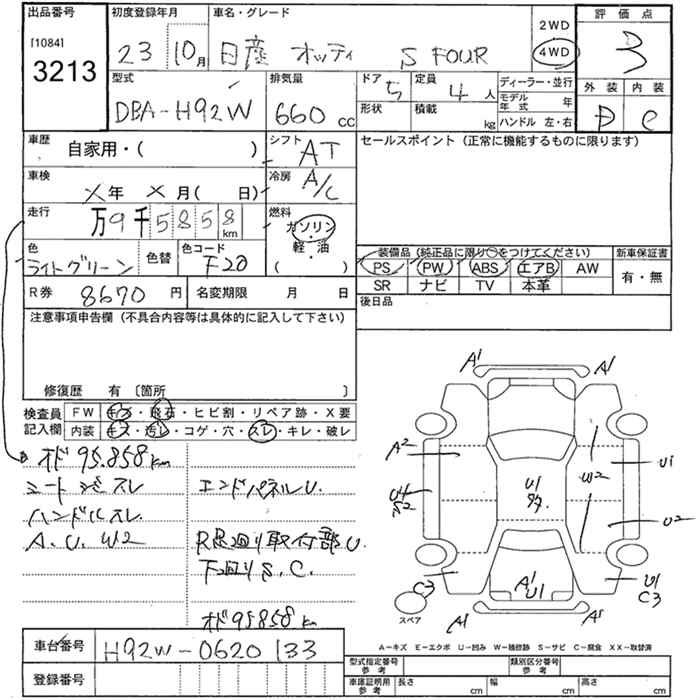 出品番号 初度登録年月 車名・グレード 2WD 評価点
[1084] 3213 23 10月 日産 オッティ S FOUR 4WD 3
型式 排気量 ドア 5 定員 4人 ディーラー・並行 外装 内装
DBA-H92W 660cc 形状 積載 kg モデル年式 年 D C
ハンドル 左・右
車歴 自家用・( ) シフト AT セールスポイント (正常に機能するものに限ります)
車検 X年 X月( 日) 冷房 A/C
走行 万9千5858km 燃料 ガソリン・軽・油 ( )
色 ライトグリーン 色替 色コード F20
装備品 (純正品に限り○をつけてください) 新車保証書
PS PW ABS エアB AW 有・無
SR ナビ TV 本革
R券 8670円 名変期限 月 日 後日品
注意事項申告欄 (不具合内容等は具体的に記入して下さい)
修復歴 有 [箇所 ]
検査員 FW キズ・飛石・ヒビ割・リペア跡・X要
記入欄 内装 キズ・汚レ・コゲ・穴・スレ・キレ・破レ
オド 95.858km
シートジミスレ エンドパネルU.
ハンドルスレ.
A.U.W2 R足廻り取付部U.
下廻りS.C.
オド95858km
A1 A1
A2 U1
U1 W2
S2 U2
C3 A1 U1 U1 C3
スペア A1 A1
A−キズ E−エクボ U−凹み W−補修跡 S−サビ C−腐食 XX−取替済
車台番号 H92W-0620133
型式指定番号 参考 類別区分番号 参考
登録番号 車庫証明用 参考 長さ cm 幅 cm 高さ cm